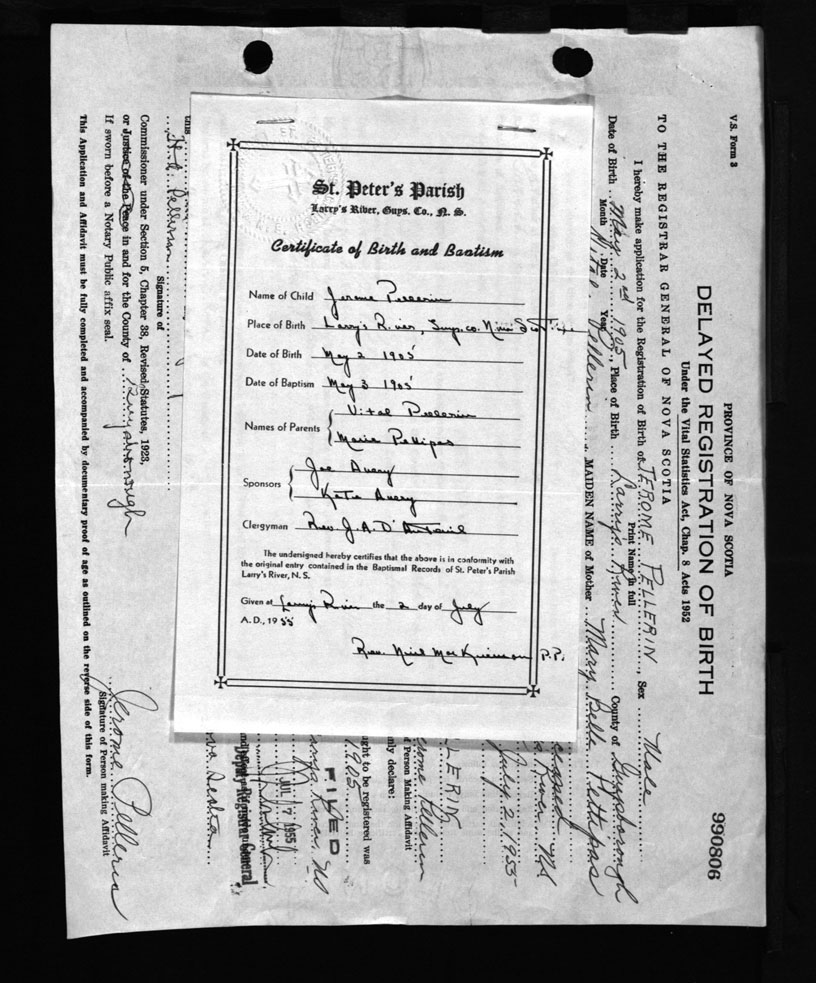 St. Peter's Parish
Larry's River, Guys. Co., N. S.
Certificate of Birth and Baptism
Name of Child Jerome Pellerin
Place of Birth Larry's River, Guys. co. Nova Scotia
Date of Birth May 2 1905
Date of Baptism May 3 1905
Names of Parents Vital Pellerin
Marie Pettipas
Sponsors Joe Avery
Katie Avery
Clergyman Rev. J. A. D'
The undersigned hereby certifies that the above is in conformity with
the original entry contained in the Baptismal Records of St. Peter's Parish
Larry's River, N. S.
Given at Larry's River the 2 day of July
A. D., 1955
Rev. P.P.
V.S. Form 3
PROVINCE OF NOVA SCOTIA
DELAYED REGISTRATION OF BIRTH
990806
Under the Vital Statistics Act, Chap. 8 Acts 1952
TO THE REGISTRAR GENERAL OF NOVA SCOTIA
I hereby make application for the Registration of Birth of JEROME PELLERIN, Sex Male
Print Name in full
Date of Birth May 2nd 1905, Place of Birth Larrys River County of Guysborough
Month Date Year
Vital Pellerin MAIDEN NAME of Mother Mary Belle Pettipas
River NS
July 2, 1955
LERIN
erome Pellerin
f Person Making Affidavit
nly declare:
aught to be registered was
1905
FILED
JUL 7 1955
Deputy Registrar General
River, NS
this
Pellerin
Signature of
Commissioner under Section 5, Chapter 38, Revised Statutes, 1923,
or Justice of the Peace in and for the County of Guysborough
If sworn before a Notary Public affix seal.
Jerome Pellerin
Signature of Person making Affidavit
This Application and Affidavit must be fully completed and accompanied by documentary proof of age as outlined on the reverse side of this form.